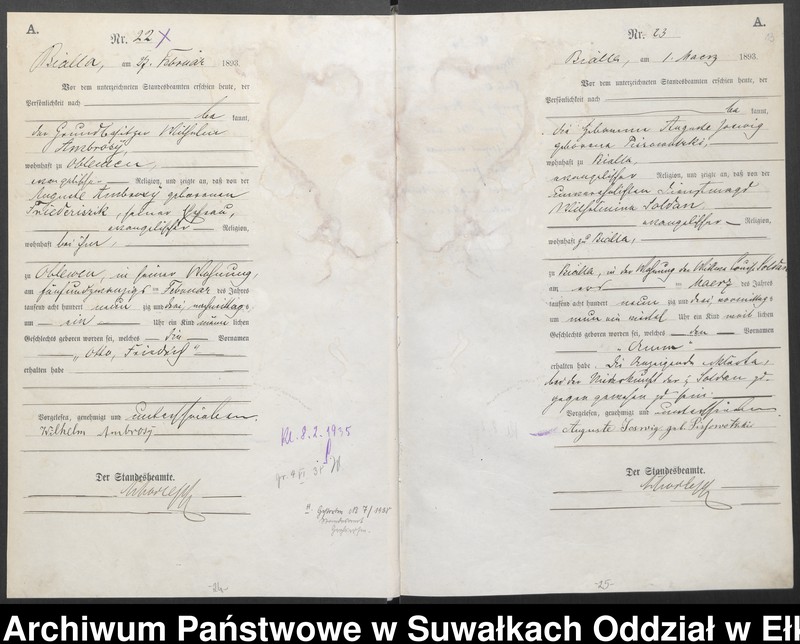 A.
Nr. 22
Bialla, am 27. Februar 1893.
Vor dem unterzeichneten Standesbeamten erschien heute, der
Persönlichkeit nach
be kannt,
der Grundbesitzer Wilhelm
Ambrosy
wohnhaft zu Oblewen,
evangelischer Religion, und zeigte an, daß von der
Auguste Ambrosy geborenen
seiner Ehefrau,
evangelischer Religion,
wohnhaft bei ihm,
zu Oblewen, in seiner Wohnung,
am fünfundzwanzigsten Februar des Jahres
tausend acht hundert neun zig und drei, nachmittags
um ein Uhr ein Kind männ lichen
Geschlechts geboren worden sei, welches die Vornamen
"Otto, Friedrich"
erhalten habe
Vorgelesen, genehmigt und unterschrieben.
Wilhelm Ambrosy
Der Standesbeamte.
Kl. 8.2.1935
-24-
A.
Nr. 23
Bialla, am 1. Maerz 1893.
Vor dem unterzeichneten Standesbeamten erschien heute, der
Persönlichkeit nach
be kannt,
die Hebamme Auguste
geborene
wohnhaft zu Bialla,
evangelischer Religion, und zeigte an, daß von der
unverehelichten Dienstmagd
Wilhelmine Soldan
evangelischer Religion,
wohnhaft zu Bialla,
zu Bialla, in der Wohnung der Wittwe Louise Soldan
am Maerz des Jahres
tausend acht hundert neun zig und drei vormittags
um neun ein viertel Uhr ein Kind weib lichen
Geschlechts geboren worden sei, welches den Vornamen
"Anna"
erhalten habe. Die Anzeigende erklaerte,
bei der Niederkunft der Soldan zu-
gegen gewesen zu sein.
Vorgelesen, genehmigt und unterschrieben
Auguste
Der Standesbeamte.
-25-
Archiwum Państwowe w Suwałkach Oddział w Ełk